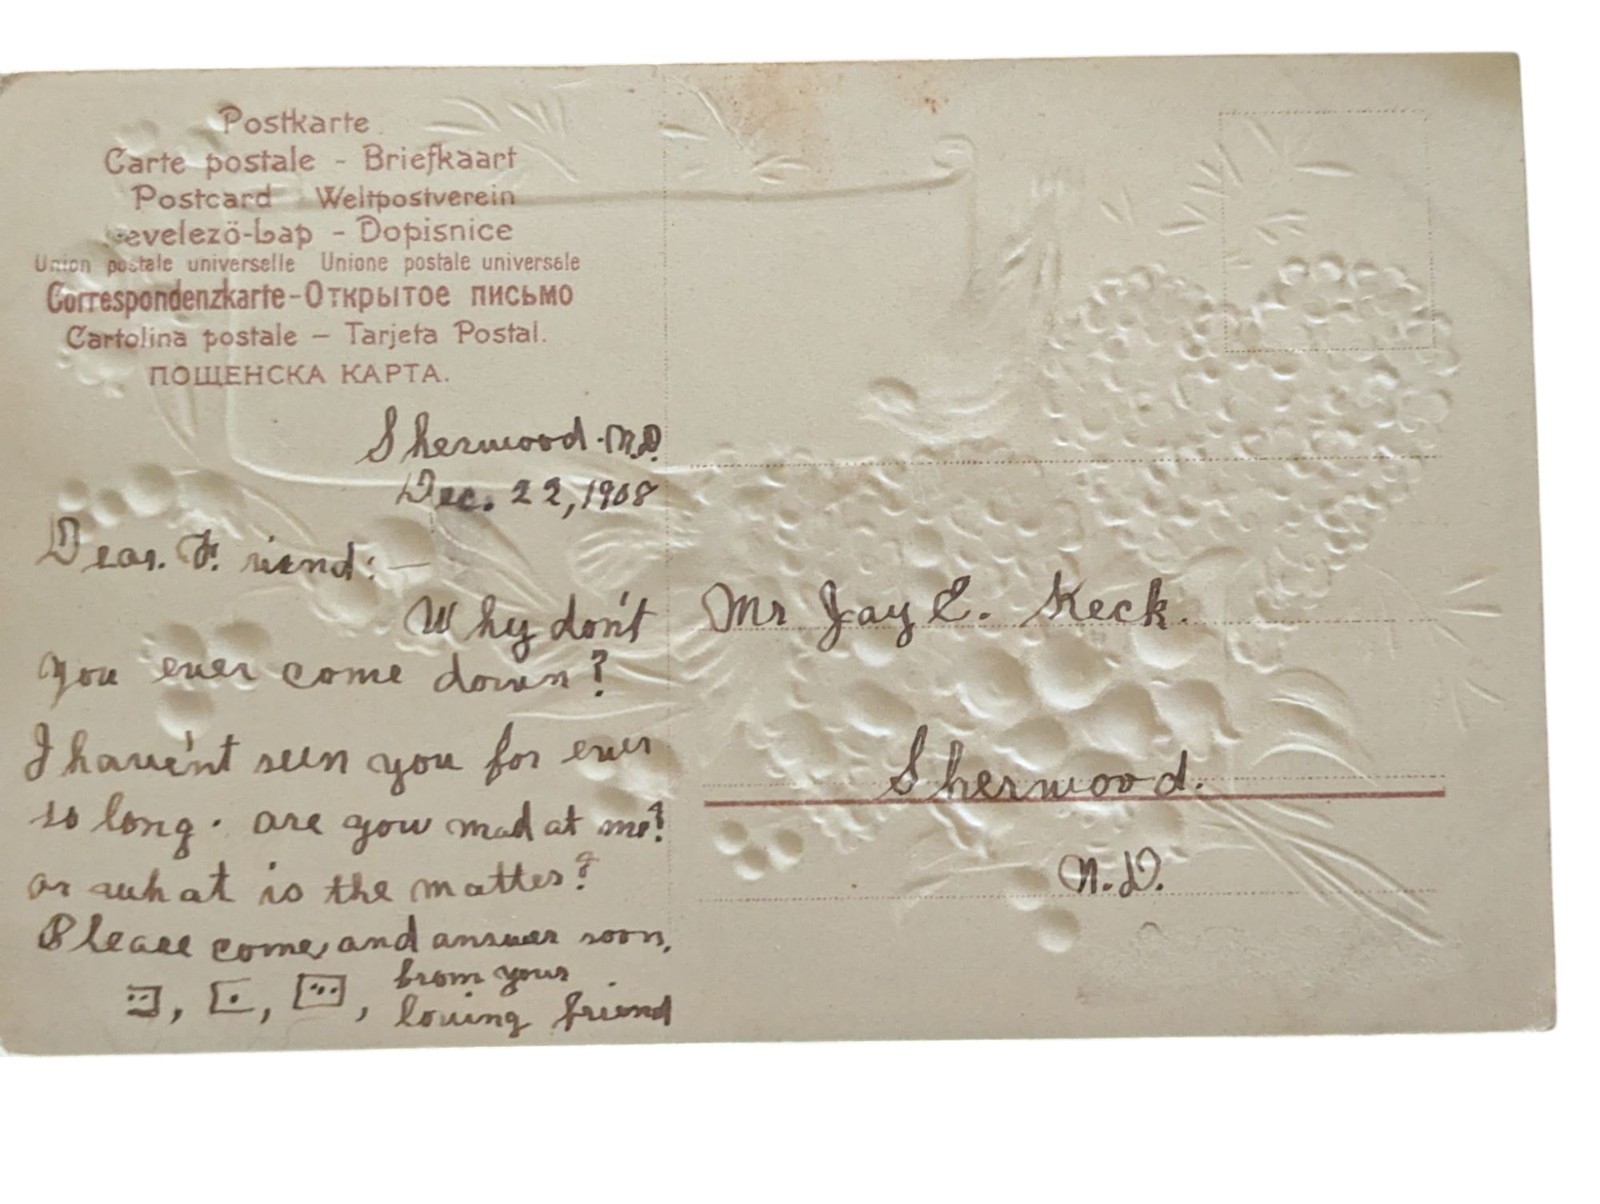 Postkarte
Carte postale - Briefkaart
Postcard Weltpostverein
evelező-Lap - Dopisnice
Union postale universelle Unione postale universale
Correspondenzkarte-Открытое письмо
Cartolina postale – Tarjeta Postal.
ПОЩЕНСКА КАРТА.
Sherwood. N.D.
Dec. 22, 1908
Dear. Friend: —
Why don't
you ever come down?
I have'nt seen you for ever
so long. are you mad at me?
or what is the matter?
Please come, and answer soon,
from your
loving friend
Mr Jay E. Keck.
Sherwood.
N.D.